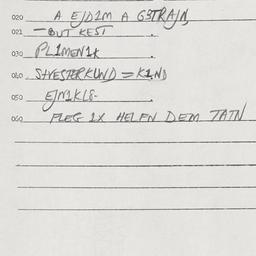 020 A EJD1M A GSTRAJN,
021 —BUT KEST .
030 PL1MEN1K .
040 SHVESTERKUND = K1ND
050 EJN1KL8- .
060 FLEG 1X HELFN DEM TATN